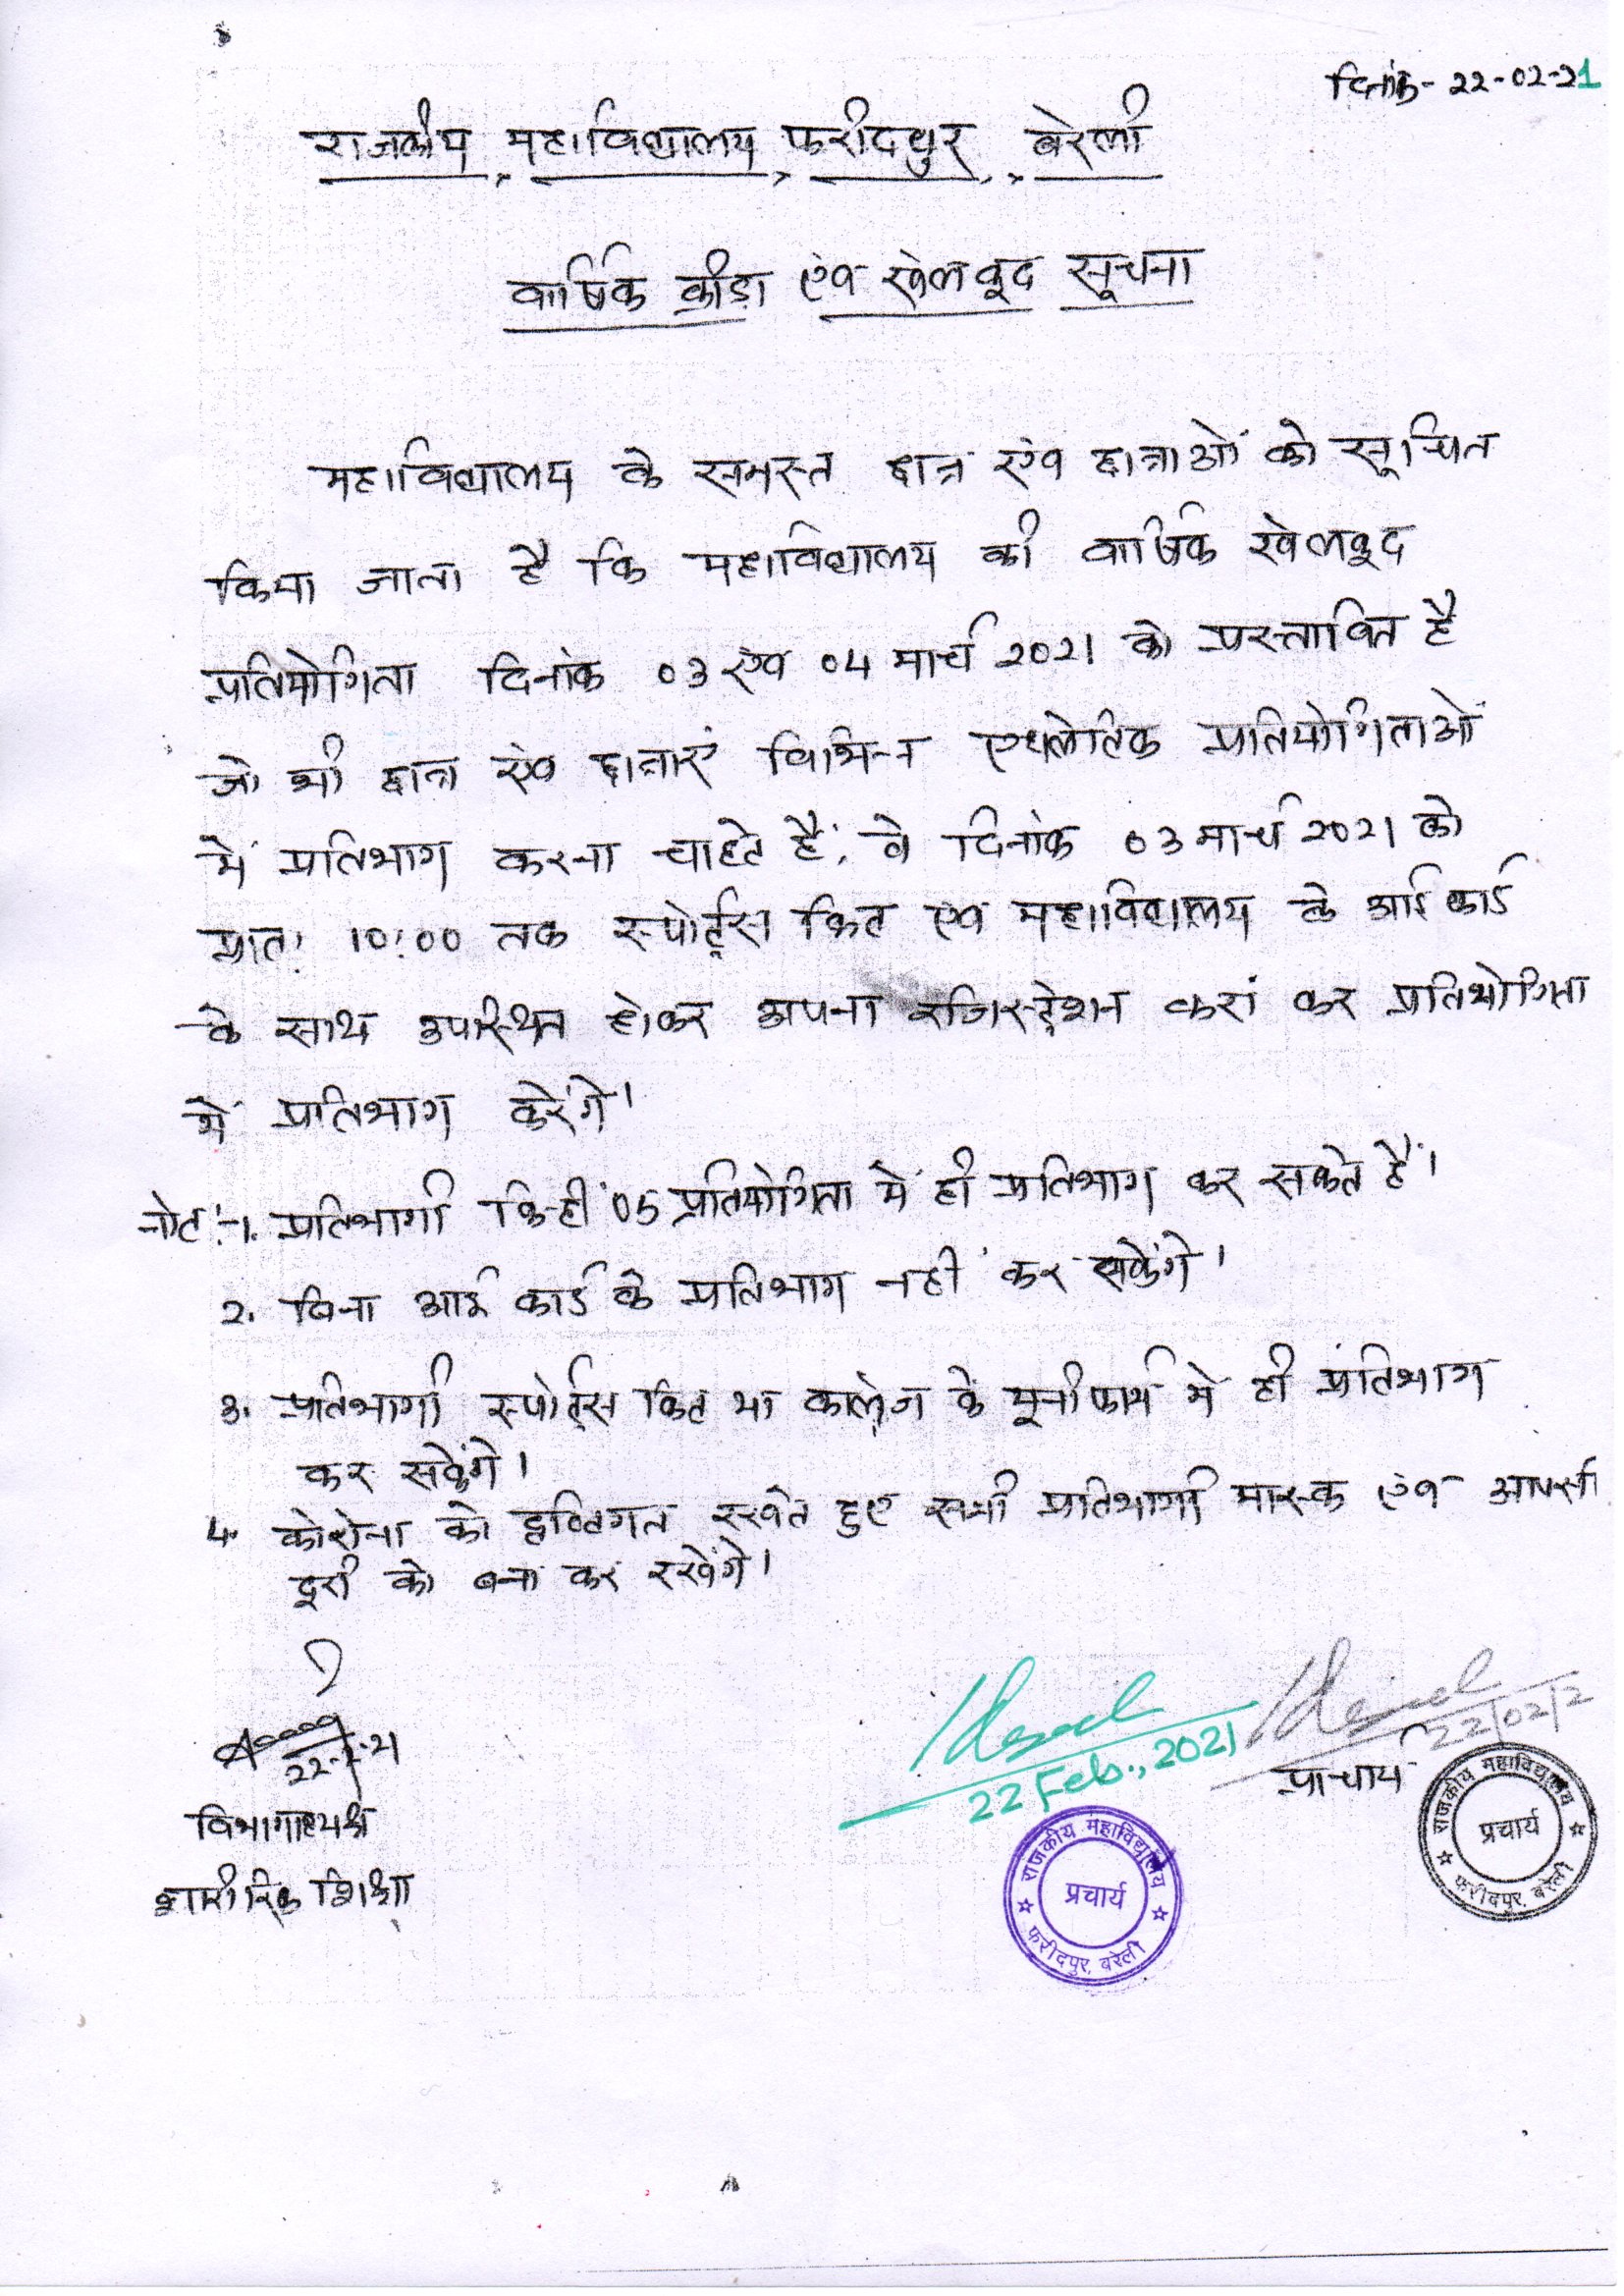 दिनांक- 22-02-21
राजकीय महाविद्यालय फरीदपुर, बरेली
वार्षिक क्रीडा एंव खेलकूद सूचना
महाविद्यालय के समस्त छात्र एंव छात्राओं को सूचित
किया जाता है कि महाविद्यालय की वार्षिक खेलकूद
प्रतियोगिता दिनांक 03 एंव 04 मार्च 2021 को प्रस्तावित है
जो भी छात्र एंव छात्राएं विभिन्न एथलेटिक प्रतियोगिताओं
में प्रतिभाग करना चाहते हैं, वे दिनांक 03 मार्च 2021 को
प्रातः 10:00 तक स्पोर्ट्स किट एंव महाविद्यालय के आई कार्ड
के साथ उपस्थित होकर अपना रजिस्ट्रेशन करां कर प्रतियोगिता
में प्रतिभाग करेंगे।
नोट:-1. प्रतिभागी किन्ही 05 प्रतियोगिता में ही प्रतिभाग कर सकते हैं।
2. बिना आई कार्ड के प्रतिभाग नहीं कर सकेंगे।
3. प्रतिभागी स्पोर्ट्स किट या कालेज के यूनीफार्म में ही प्रतिभाग
कर सकेंगे।
4. कोरोना को दृष्टिगत रखते हुए सभी प्रतिभागी मास्क एंव आपसी
दूरी को बना कर रखेंगे।
22-2-21
विभागाध्यक्ष
शारीरिक शिक्षा
22 Feb., 2021
राजकीय महाविद्यालय
प्रचार्य
फरीदपुर, बरेली
22/02/2
प्राचार्य
राजकीय महाविद्यालय
प्रचार्य
फरीदपुर, बरेली